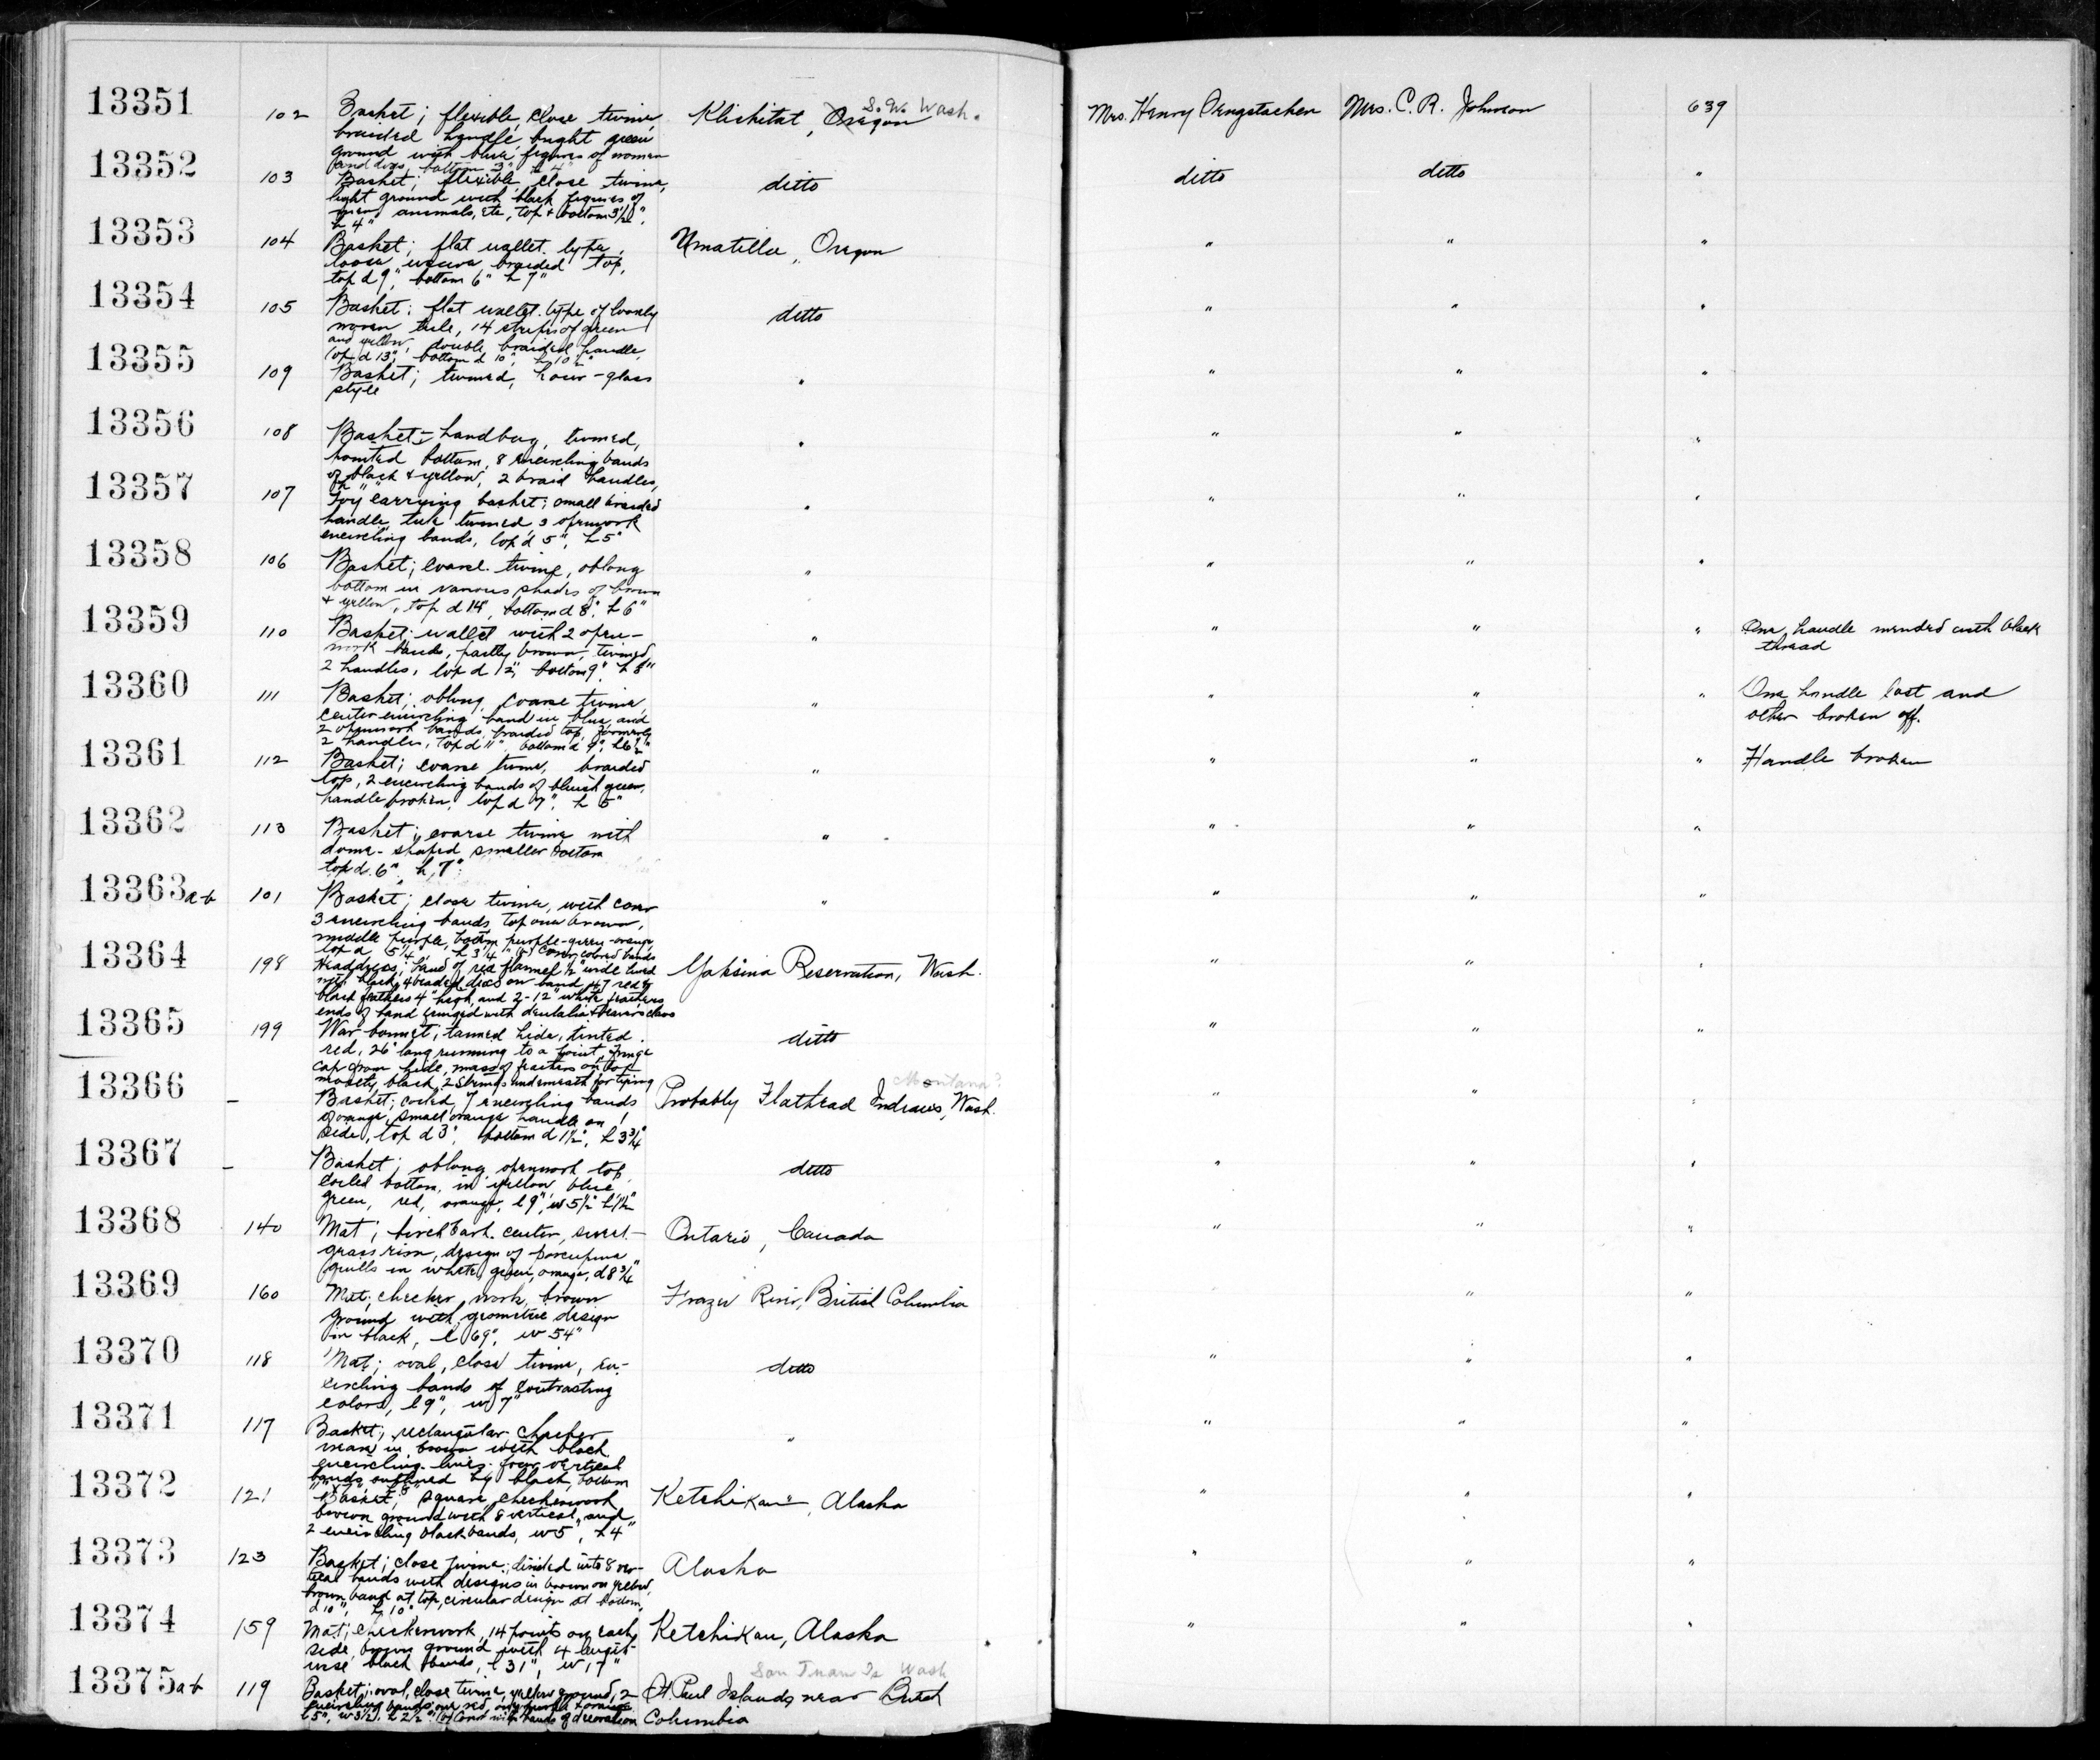 13351 102 Basket; flexible, close twine, Klickitat, Oregon S.W. Wash. Mrs. Henry Mrs. C. R. Johnson 639
braided handle, bright green
ground with blue figures of women
and dogs, bottom 3" h 4"
13352 103 Basket; flexible, close twine, ditto ditto ditto "
light ground with black figures of
men, animals, etc, top & bottom 3 1/2",
h 4"
13353 104 Basket; flat wallet type, Umatilla, Oregon " " "
loose weave braided top,
top d 9", bottom 6" h 7"
13354 105 Basket; flat wallet type of loosely ditto " " "
woven tule, 14 strips of green
and yellow, double braided handle,
top d 13", bottom d 10", h 10 1/2"
13355 109 Basket; twined, hour-glass " " " "
style
13356 108 Basket; handbag, twined, " " " "
pointed bottom, 8 encircling bands
of black & yellow, 2 braid handles,
13357 107 Toy carrying basket; small braided " " " "
handle, tule twined, 3 openwork
encircling bands, top d 5", h 5"
13358 106 Basket; coarse twine, oblong " " " "
bottom in various shades of brown
& yellow, top d 14", bottom d 8", h 6"
13359 110 Basket; wallet with 2 open- " " " " One handle mended with black
work bands, partly brown, twined, thread
2 handles, top d 12", bottom 9", h 8"
13360 111 Basket; oblong, coarse twine, " " " " One handle lost and
center encircling band in blue, and other broken off.
2 openwork bands, braided top, formerly
2 handles, top d 11", bottom d 9", h 6 1/2"
13361 112 Basket; coarse twine, braided " " " " Handle broken
top, 2 encircling bands of bluish green,
handle broken, top d 7", h 5"
13362 113 Basket; coarse twine with " " " "
dome-shaped smaller bottom
top d. 6", h, 7"
13363a-b 101 Basket; close twine, with cover " " " "
3 encircling bands, top one brown,
middle purple, bottom purple-green-orange,
top d 5 1/4", h 3 1/4" (b) Cover, colored bands
13364 198 Headdress; band of red flannel 1/2" wide lined Yakima Reservation, Wash. " " "
with black, 4 beaded discs on band, 47 red &
black feathers 4" high, and 2-12" white feathers,
ends of band fringed with dentalia & beavers claws
13365 199 War bonnet; tanned hide, tinted ditto " " "
red, 26" long running to a point, fringe
cap from hide, mass of feathers on top
mostly black, 2 strings underneath for tying
13366 - Basket; coiled, 7 encircling bands Probably Flathead Indians, Wash. Montana? " " "
of orange, small orange handle on 1
side, top d 3", bottom d 1 1/2", h 3 3/4"
13367 - Basket; oblong, openwork top, ditto " " "
coiled bottom, in yellow, blue,
green, red, orange, l 9", w 5 1/2" h 1 1/2"
13368 140 Mat; birchbark center, sweet- Ontario, Canada " " "
grass rim, design of porcupine
quills in white, green, orange, d 8 3/4"
13369 160 Mat; checker work, brown Frazer River, British Columbia " "
ground with geometric design
in black, l 69", w 54"
13370 118 Mat; oval, close twine, en- ditto " " "
circling bands of contrasting
colors, l 9", w 7"
13371 117 Basket; rectangular, checker " " " "
weave in brown with black
encircling lines, four vertical
bands outlined by black, bottom
13372 121 Basket; square, checkerwork Ketchikan, Alaska " " "
brown ground with 8 vertical, and
2 encircling black bands, w 5", h 4"
13373 123 Basket; close twine; divided into 8 ver- Alaska " " "
tical bands with designs in brown on yellow,
brown band at top, circular design at bottom,
d 10", h 10"
13374 159 Mat; checkerwork, 14 points on each Ketchikan, Alaska " " "
side, brown ground with 4 length-
wise black bands, l 31", w 17"
13375a-b 119 Basket; oval, close twine, yellow ground, 2 St. Paul Islands near British San Juan Is Wash
encircling bands one red, one purple & orange Columbia
l 5", w 3 1/2", h 2 1/2" (b) Cover with bands of decoration